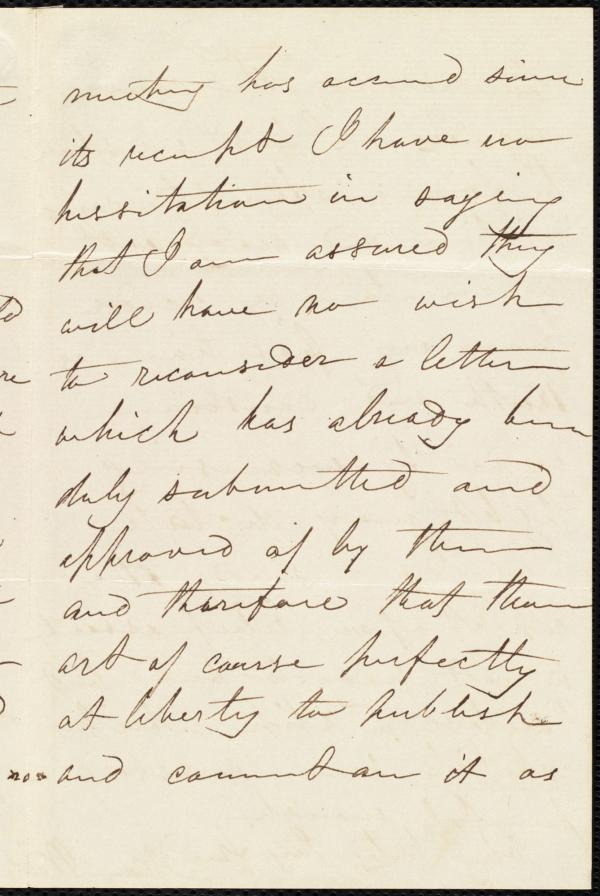 nothing has occurred since
its receipt I have no
hessitation in saying
that I am assured they
will have no wish
to reconsider a letter
which has already been
duly submitted and
approved of by them
and therefore that thou
art of course perfectly
at liberty to publish
and comment on it as